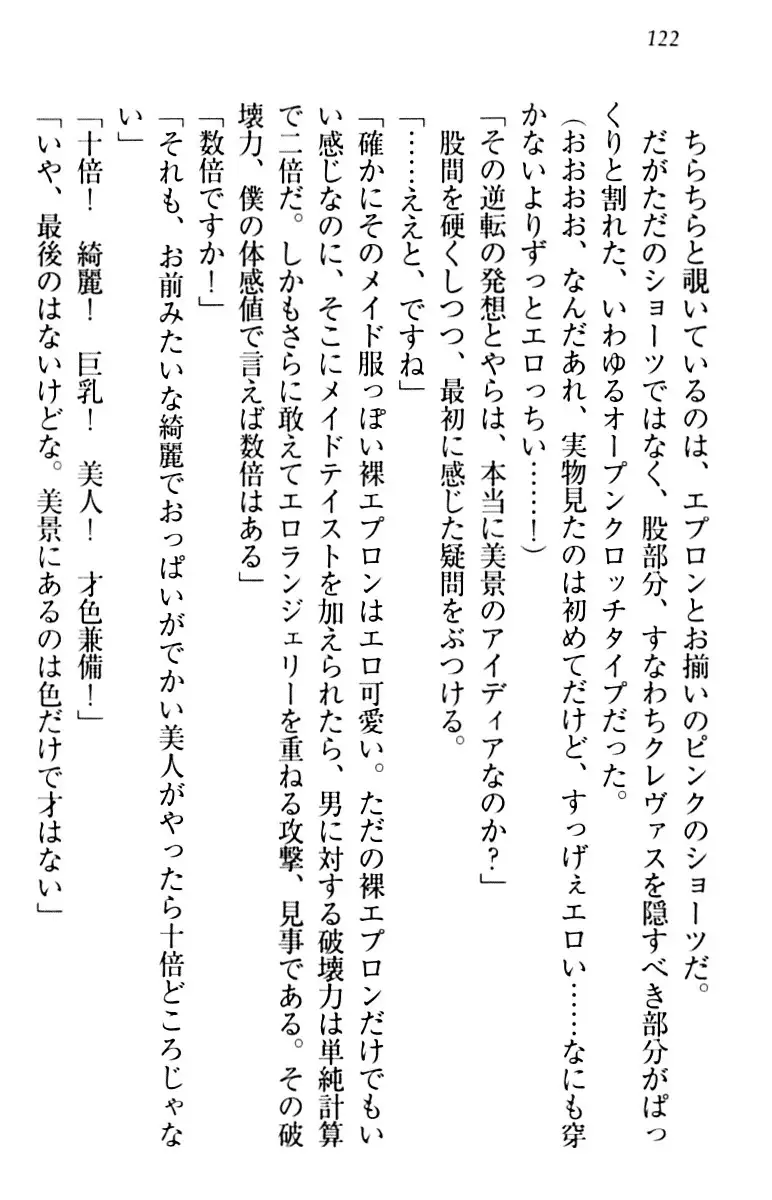 122
ちらちらと覗いているのは、エプロンとお揃いのピンクのショーツだ。
だがただのショーツではなく、股部分、すなわちクレヴァスを隠すべき部分がぱっ
くりと割れた、いわゆるオープンクロッチタイプだった。
(おおおお、なんだあれ、実物見たのは初めてだけど、すっげぇエロい……なにも穿
かないよりずっとエロっちい……！)
「その逆転の発想とやらは、本当に美景のアイディアなのか？」
股間を硬くしつつ、最初に感じた疑問をぶつける。
「……ええと、ですね」
「確かにそのメイド服っぽい裸エプロンはエロ可愛い。ただの裸エプロンだけでもい
い感じなのに、そこにメイドテイストを加えられたら、男に対する破壊力は単純計算
で二倍だ。しかもさらに敢えてエロランジェリーを重ねる攻撃、見事である。その破
壊力、僕の体感値で言えば数倍はある」
「数倍ですか！」
「それも、お前みたいな綺麗でおっぱいがでかい美人がやったら十倍どころじゃな
い」
「十倍！　綺麗！　巨乳！　美人！　才色兼備！」
「いや、最後のはないけどな。美景にあるのは色だけで才はない」